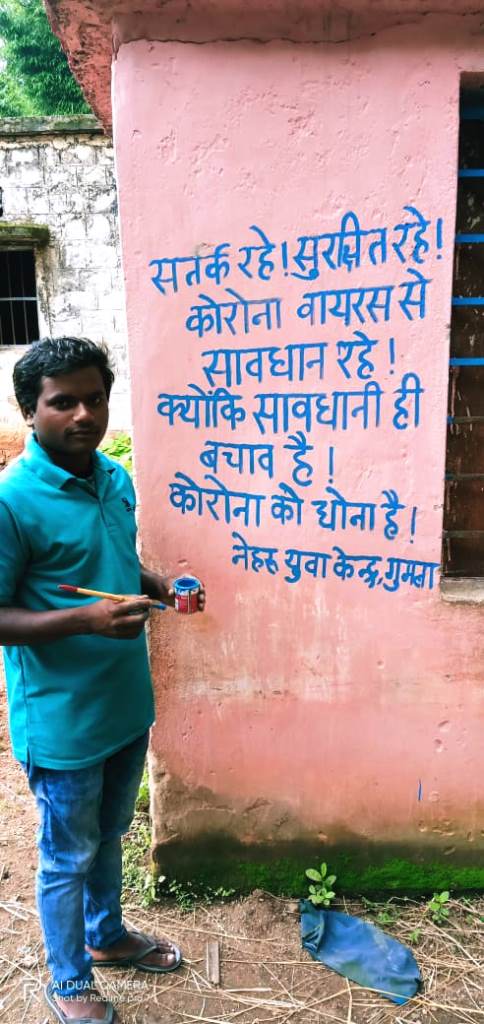 सतर्क रहे! सुरक्षित रहे!
कोरोना वायरस से
सावधान रहे!
क्योंकि सावधानी ही
बचाव है!
कोरोना को धोना है!
नेहरू युवा केन्द्र, गुमला
AI DUAL CAMERA
Shot by Realme pro 7